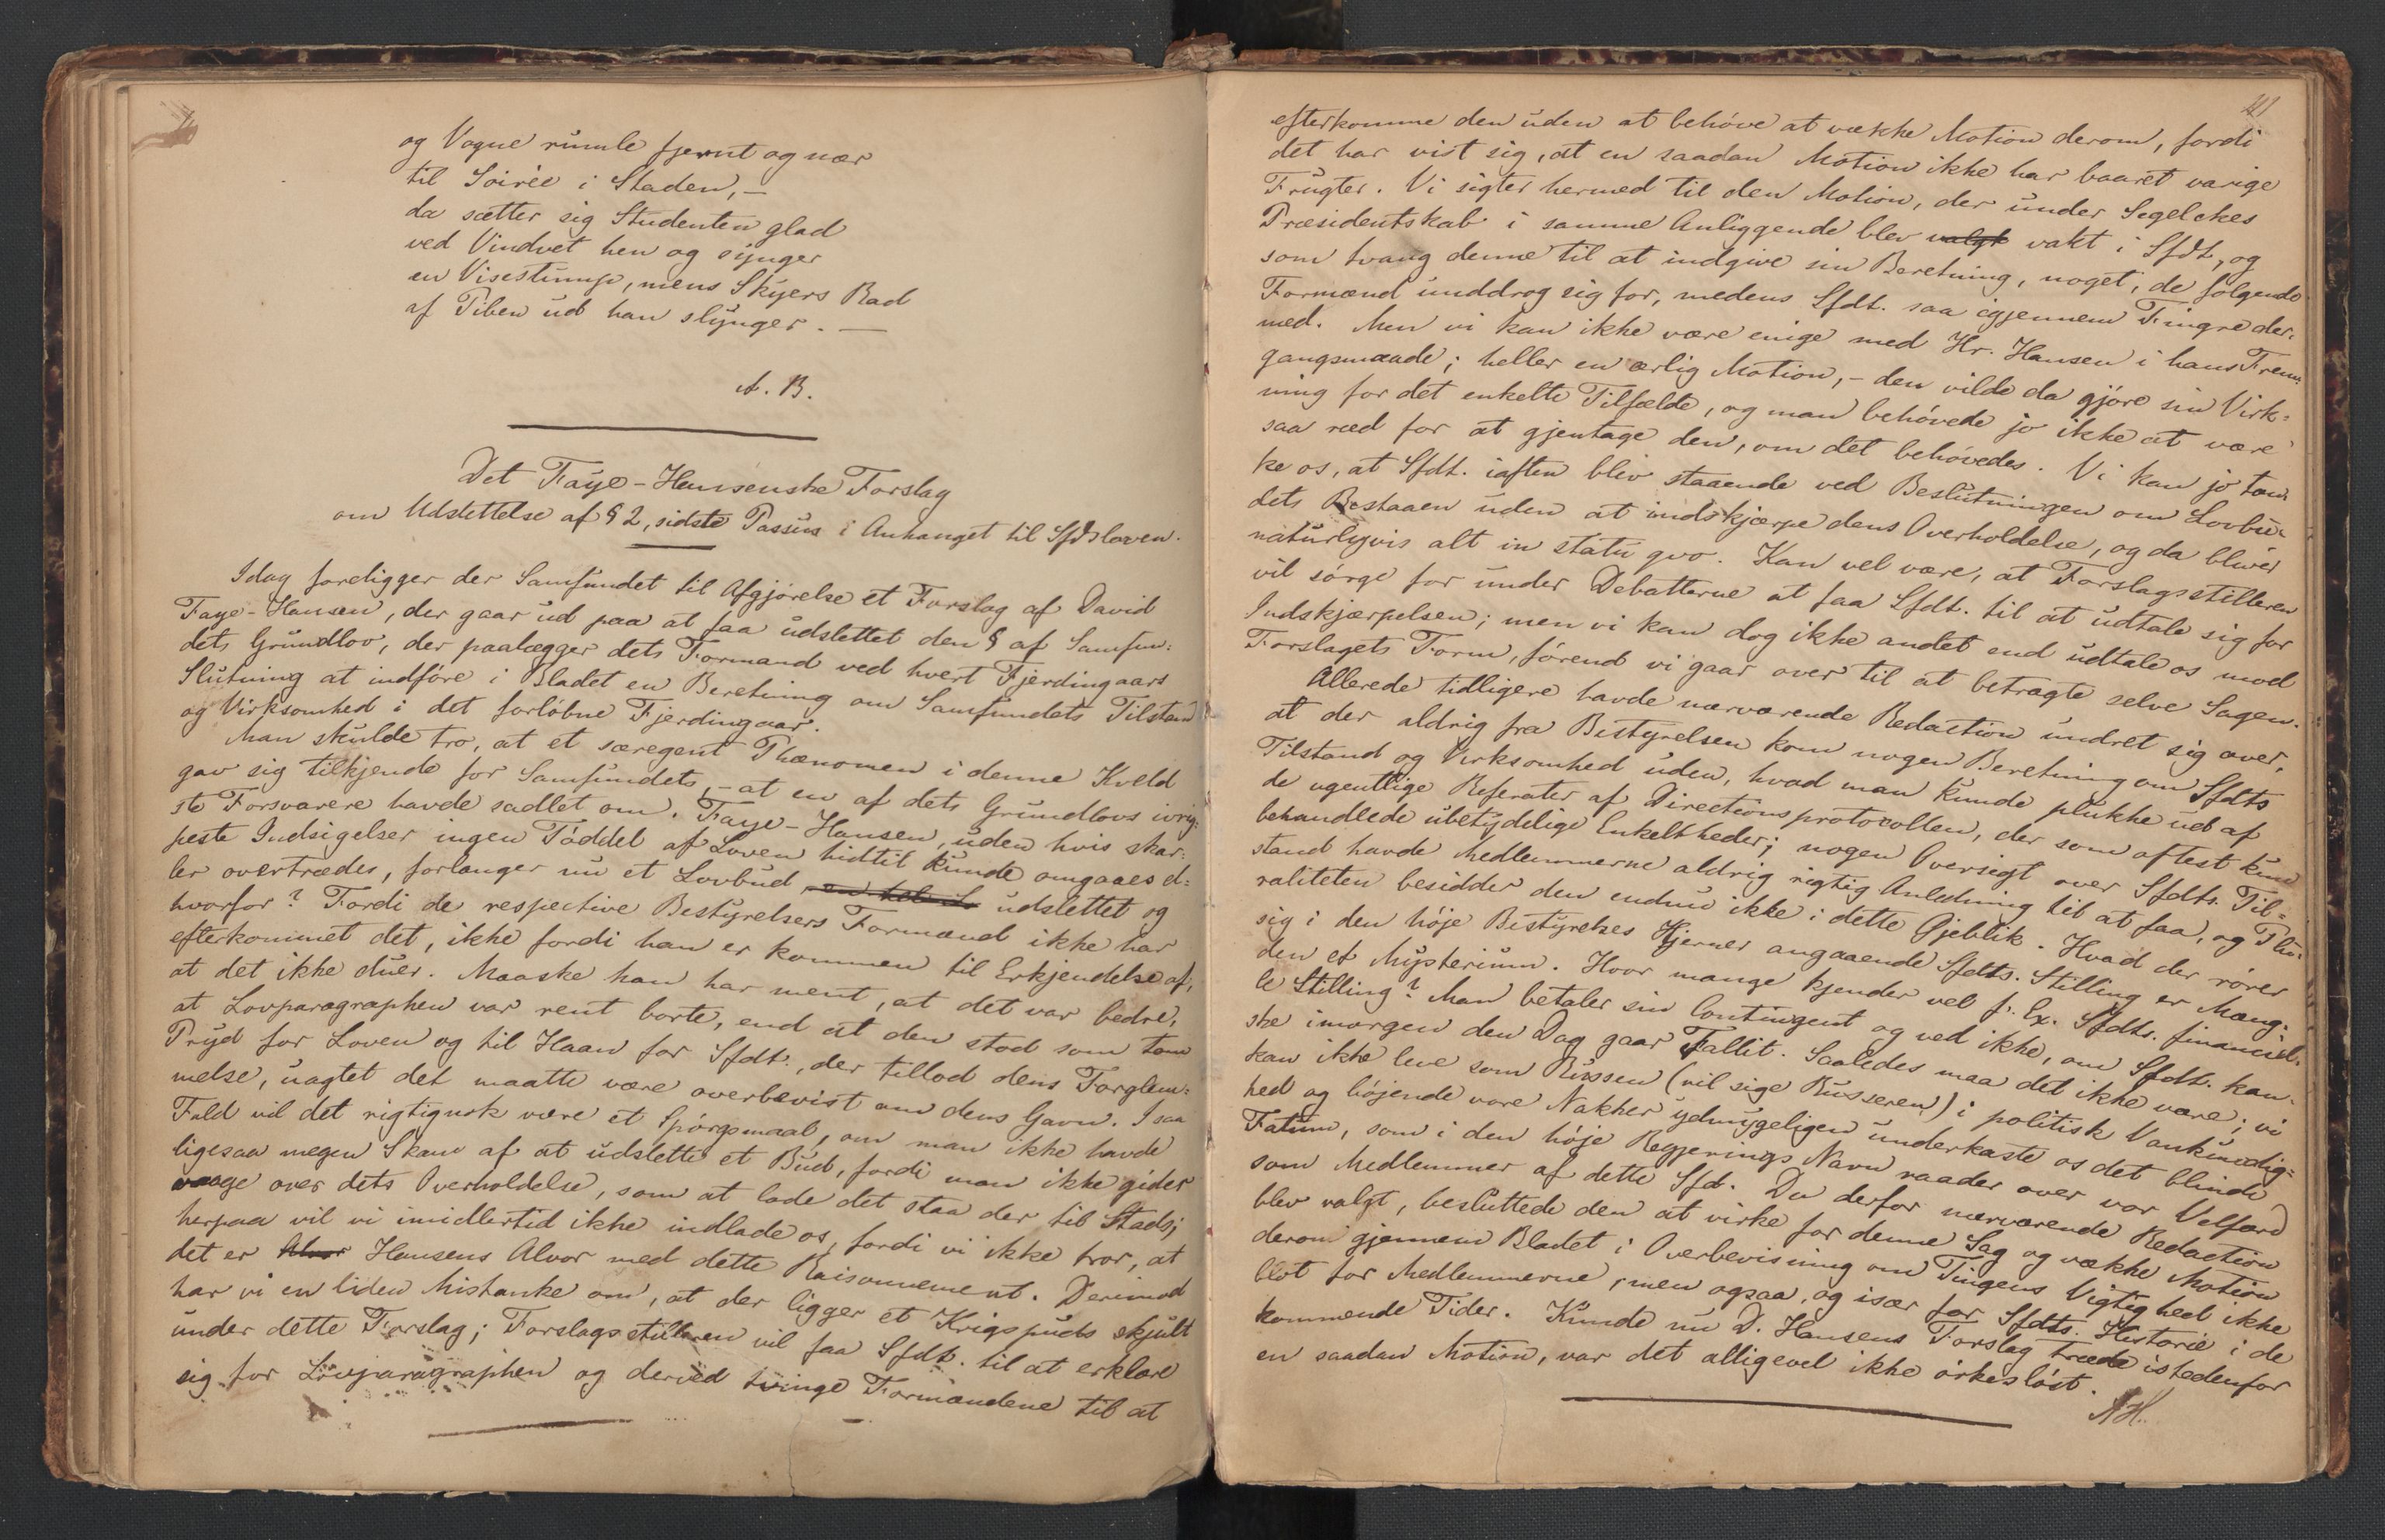 og Vogne rumle fjernt og nær
til Soirèe i Staden, —
da sætter sig Studenten glad
ved Vindvet hen og synger
en Visestump, mens Skyers Rad
af Piben ud han slynger. —
A. B.
Det Faye-Hansenske Forslag
om Udslettelse af § 2, sidste Passus i Anhanget til Sfdsloven.
Idag foreligger der Samfundet til Afgjørelse et Forslag af David
Faye-Hansen, der gaar ud paa at faa udslettet den § af Samfun-
dets Grundlov, der paalægger dets Formand ved hvert Fjerdingaars
Slutning at indføre i Bladet en Beretning om Samfundets Tilstand
og Virksomhed i det forløbne Fjerdingaar.
Man skulde tro, at et særegent Phænomen i denne Kveld
gav sig tilkjende for Samfundet, – at en af dets Grundlovs ivrig-
ste Forsvarere havde sadlet om. Faye-Hansen, uden hvis skar-
peste Indsigelser ingen Tøddel af Loven hidtil kunde omgaaes el-
ler overtrædes, forlanger nu et Lovbud udslettet og
hvorfor? Fordi de respective Bestyrelsers Formænd ikke har
efterkommet det, ikke fordi han er kommen til Erkjendelse af,
at det ikke duer. Maaske han har ment, at det var bedre,
at Lovparagraphen var rent borte, end at den stod som tom
Pryd for Loven og til Haan for Sfdt., der tillod dens Forglem-
melse, uagtet det maatte være overbevist om dens Gavn. I saa
Fald vil det rigtignok være et Spørgsmaal, om man ikke havde
ligesaa megen Skam af at udslette et Bud, fordi man ikke gider
vaage over dets Overholdelse, som at lade det staa der til Stads;
herpaa vil vi imidlertid ikke indlade os, fordi vi ikke tror, at
det er Alvor Hansens Alvor med dette Raisonnement. Derimod
har vi en liden Mistanke om, at der ligger et Krigspuds skjult
under dette Forslag; Forslagsstilleren vil faa Sfdt. til at erklære
sig for Lovparagraphen og derved tvinge Formændene til at
efterkomme den uden at behøve at vække Motion derom, fordi
det har vist sig, at en saadan Motion ikke har baaret varige
Frugter. Vi sigter hermed til den Motion, der under Segelckes
Præsidentskab i samme Anliggende blev valgt vakt i Sfdt, og
som tvang denne til at indgive sin Beretning, noget, de følgende
Formænd unddrog sig for, medens Sfdt. saa igjennem Fingre der-
med. Men vi kan ikke være enige med Hr. Hansen i hans Frem-
gangsmaade; heller en ærlig Motion, – den vilde da gjøre sin Virk-
ning for det enkelte Tilfælde, og man behøvede jo ikke at være
saa ræd for at gjentage den, om det behøvedes. Vi kan jo tæn-
ke os, at Sfdt. iaften blev staaende ved Beslutningen om Lovbu-
dets Bestaaen uden at indskjærpe dens Overholdelse, og da bliver
naturligvis alt in statu qvo. Kan vel være, at Forslagsstilleren
vil sørge for under Debatterne at faa Sfdt. til at udtale sig for
Indskjærpelsen; men vi kan dog ikke andet end udtale os mod
Forslagets Form, førend vi gaar over til at betragte selve Sagen.
Allerede tidligere havde nærværende Redaction undret sig over,
at der aldrig fra Bestyrelsen kom nogen Beretning om Sfdts
Tilstand og Virksomhed uden, hvad man kunde plukke ud af
de ugentlige Referater af Directionsprotocollen, der som oftest kun
behandlede ubetydelige Enkeltheder; nogen Oversigt over Sfdts. Til-
stand havde Medlemmerne aldrig rigtig Anledning til at faa, og Plu-
raliteten besidder den endnu ikke i dette Øjeblik. Hvad der rører
sig i den høje Bestyrelses Hjerner angaaende Sfdts. Stilling er Mang-
den et Mysterium. Hvor mange kjender vel f. Ex. Sfdts. financiel-
le Stilling? Man betaler sin Contingent og ved ikke, om Sfdt. kan-
ske imorgen den Dag gaar Fallit. Saaledes maa det ikke være; vi
kan ikke leve som Russen (vil sige Russeren) i politisk Vankundig-
hed og bøjende vore Nakker ydmygeligen underkaste os det blinde
Fatum, som i den høje Regjerings Navn raader over vor Velfærd
som Medlemmer af dette Sfd. Da derfor nærværende Redaction
blev valgt, besluttede den at virke for denne Sag og vække Motion
derom gjennem Bladet i Overbevisning om Tingens Vigtighed ikke
blot for Medlemmerne, men ogsaa, og især for Sfdts. Historie i de
kommende Tider. Kunde nu D. Hansens Forslag træde istedenfor
en saadan Motion, var det alligevel ikke ørkesløst.
AH.